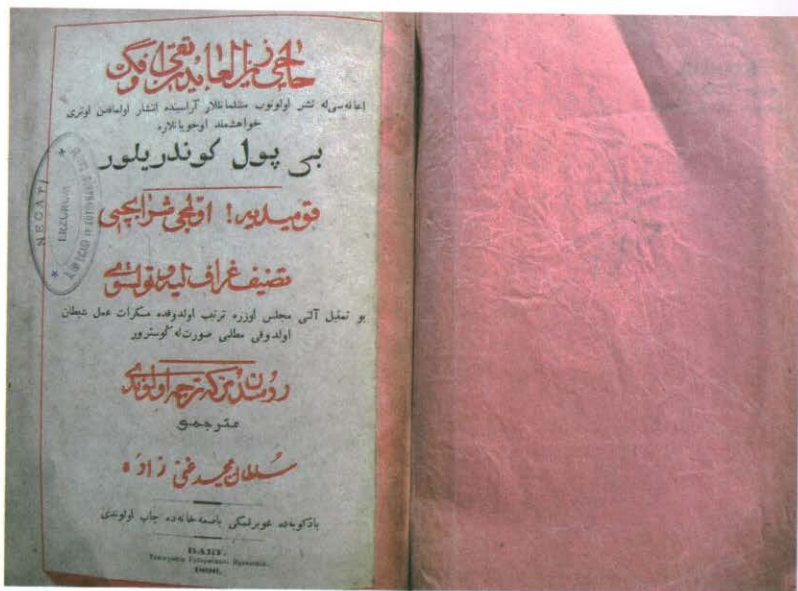 حاجی زین العابدین تقی اوفک
اعانه‌سی‌له نشر اولونوب مسلمانلار آراسیده انتشار اولماقدن اوتری
خواهشمند اوخویانلاره
بی پول کوندریلور
قومیدیه! اوّلمجی شرابچی
تصنیف غراف لیو تولستوی
بو تمثیل آلتی مجلس اوزره ترتیب اولدوقده مسکرات عمل شیطان
اولدوقی مطلبی صورت‌له گوسترور
روسدن ترکه ترجمه اولوندی
مترجمی
سلطان مجید غنی زاده
بادکوبه‌ده غوبرنسکی باصمه‌خانه‌ده چاپ اولوندی
БАКУ.
Типографія Губернскаго Правленія.
1896.
NECATİ
ERZURUM